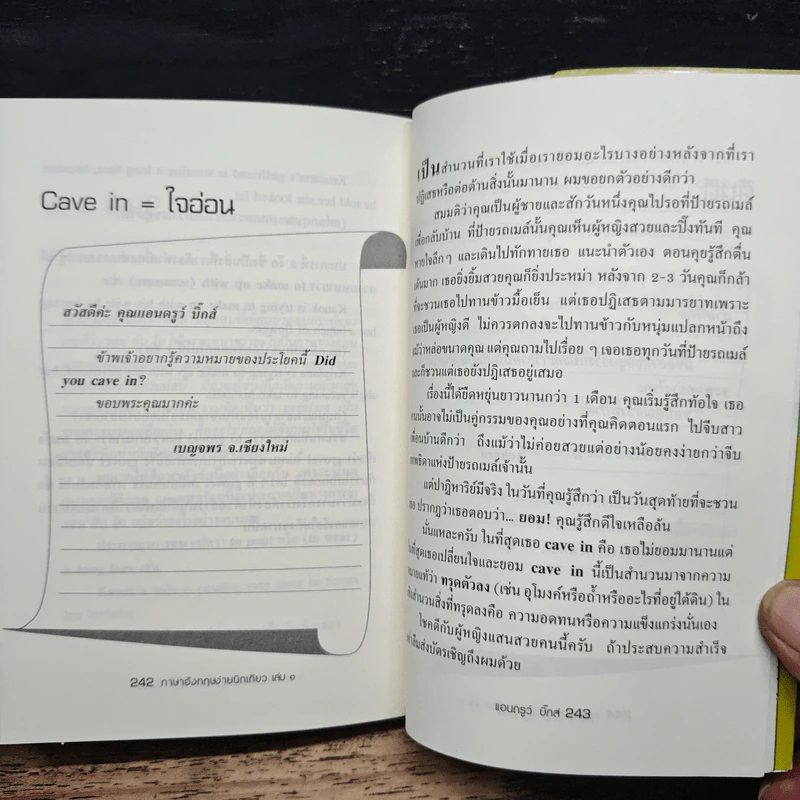 Cave in = ใจอ่อน
สวัสดีค่ะ คุณแอนดรูว์ บิ๊กส์
ข้าพเจ้าอยากรู้ความหมายของประโยคนี้ Did
you cave in?
ขอบพระคุณมากค่ะ
เบญจพร จ.เชียงใหม่
242 ภาษาอังกฤษง่ายนิดเดียว เล่ม ๑
เป็นสำนวนที่เราใช้เมื่อเรายอมอะไรบางอย่างหลังจากที่เรา
ปฏิเสธหรือต่อต้านสิ่งนั้นมานาน ผมขอยกตัวอย่างดีกว่า
สมมติว่าคุณเป็นผู้ชายและสักวันหนึ่งคุณไปรอที่ป้ายรถเมล์
เพื่อกลับบ้าน ที่ป้ายรถเมล์นั้นคุณเห็นผู้หญิงสวยและปิ๊งทันที คุณ
หายใจลึกๆ และเดินไปทักทายเธอ แนะนำตัวเอง ตอนคุยรู้สึกตื่น
เต้นมาก เธอยิ่งยิ้มสวยคุณก็ยิ่งประหม่า หลังจาก 2-3 วันคุณก็กล้า
ที่จะชวนเธอไปทานข้าวมื้อเย็น แต่เธอปฏิเสธตามมารยาทเพราะ
เธอเป็นผู้หญิงดี ไม่ควรตกลงจะไปทานข้าวกับหนุ่มแปลกหน้าถึง
แม้ว่าหล่อขนาดคุณ แต่คุณถามไปเรื่อย ๆ เจอเธอทุกวันที่ป้ายรถเมล์
และก็ชวนแต่เธอยังปฏิเสธอยู่เสมอ
เรื่องนี้ได้ยืดหยุ่นยาวนานกว่า 1 เดือน คุณเริ่มรู้สึกท้อใจ เธอ
คนนั้นอาจไม่เป็นคู่กรรมของคุณอย่างที่คุณคิดตอนแรก ไปจีบสาว
เพื่อนบ้านดีกว่า ถึงแม้ว่าไม่ค่อยสวยแต่อย่างน้อยคงง่ายกว่าจีบ
เทพธิดาแห่งป้ายรถเมล์เจ้านั้น
แต่ปาฏิหาริย์มีจริง ในวันที่คุณรู้สึกว่า เป็นวันสุดท้ายที่จะชวน
เธอ ปรากฏว่าเธอตอบว่า... ยอม! คุณรู้สึกดีใจเหลือล้น
นั่นแหละครับ ในที่สุดเธอ cave in คือ เธอไม่ยอมมานานแต่
ในที่สุดเธอเปลี่ยนใจและยอม cave in นี้เป็นสำนวนมาจากความ
หมายแท้ว่า ทรุดตัวลง (เช่น อุโมงค์หรือถ้ำหรืออะไรที่อยู่ใต้ดิน) ใน
สำนวนสิ่งที่ทรุดลงคือ ความอดทนหรือความแข็งแกร่งนั่นเอง
โชคดีกับผู้หญิงแสนสวยคนนี้ครับ ถ้าประสบความสำเร็จ
อย่าลืมส่งบัตรเชิญถึงผมด้วย
แอนดรูว์ บิ๊กส์ 243